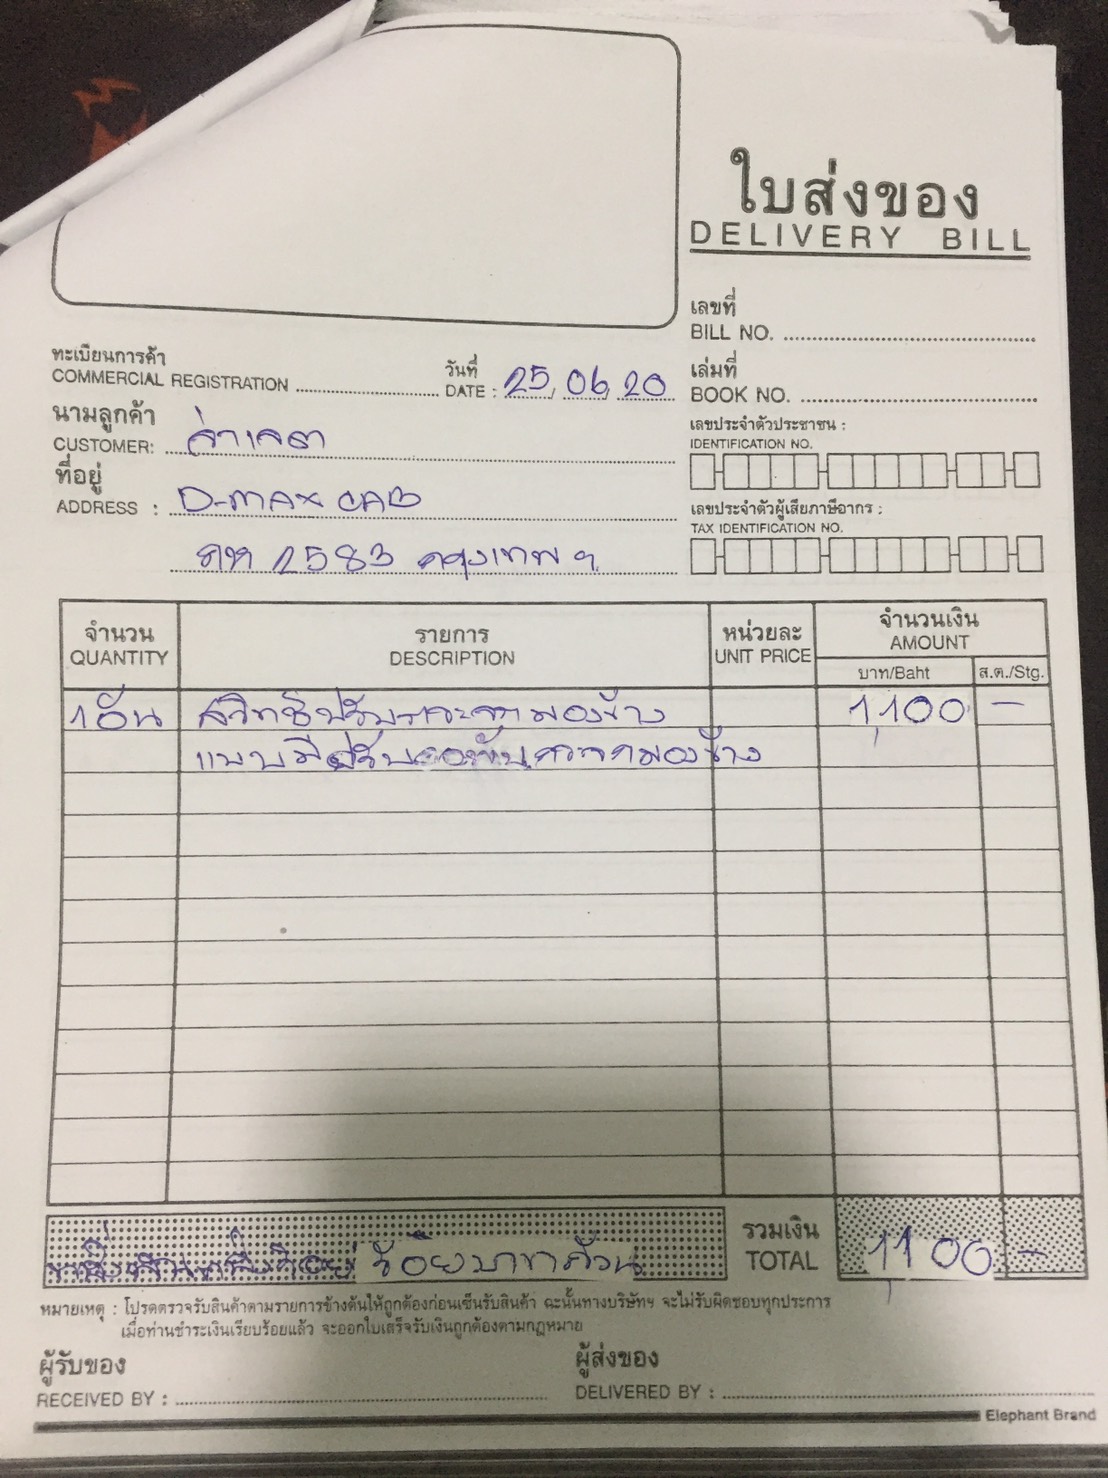 ใบส่งของ
DELIVERY BILL
เลขที่
BILL NO.
ทะเบียนการค้า
COMMERCIAL REGISTRATION
วันที่
DATE : 25/06/20
เล่มที่
BOOK NO.
นามลูกค้า
CUSTOMER:
เลขประจำตัวประชาชน :
IDENTIFICATION NO.
ที่อยู่
ADDRESS : D-MAX CAB
2583 กรุงเทพฯ
เลขประจำตัวผู้เสียภาษีอากร :
TAX IDENTIFICATION NO.
จำนวน
QUANTITY
รายการ
DESCRIPTION
หน่วยละ
UNIT PRICE
จำนวนเงิน
AMOUNT
บาท/Baht
ส.ต./Stg.
1 อัน สวิทช์ปรับกระจกมองข้าง 1,100 -
แบบมีปรับ มองข้าง
ร้อยบาทถ้วน
รวมเงิน
TOTAL
1,100 -
หมายเหตุ : โปรดตรวจรับสินค้าตามรายการข้างต้นให้ถูกต้องก่อนเซ็นรับสินค้า ฉะนั้นทางบริษัทฯ จะไม่รับผิดชอบทุกประการ
เมื่อท่านชำระเงินเรียบร้อยแล้ว จะออกใบเสร็จรับเงินถูกต้องตามกฎหมาย
ผู้รับของ
RECEIVED BY :
ผู้ส่งของ
DELIVERED BY :
Elephant Brand